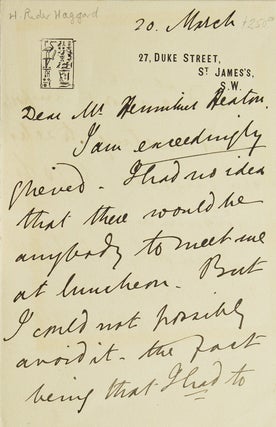 H. Rider Haggard
20. March
£250
27, DUKE STREET,
ST JAMES'S,
S.W.
Dear Mr. Henniker Heaton,
I am exceedingly
grieved. I had no idea
that there would be
anybody to meet me
at luncheon. But
I could not possibly
avoid it - the fact
being that I had to